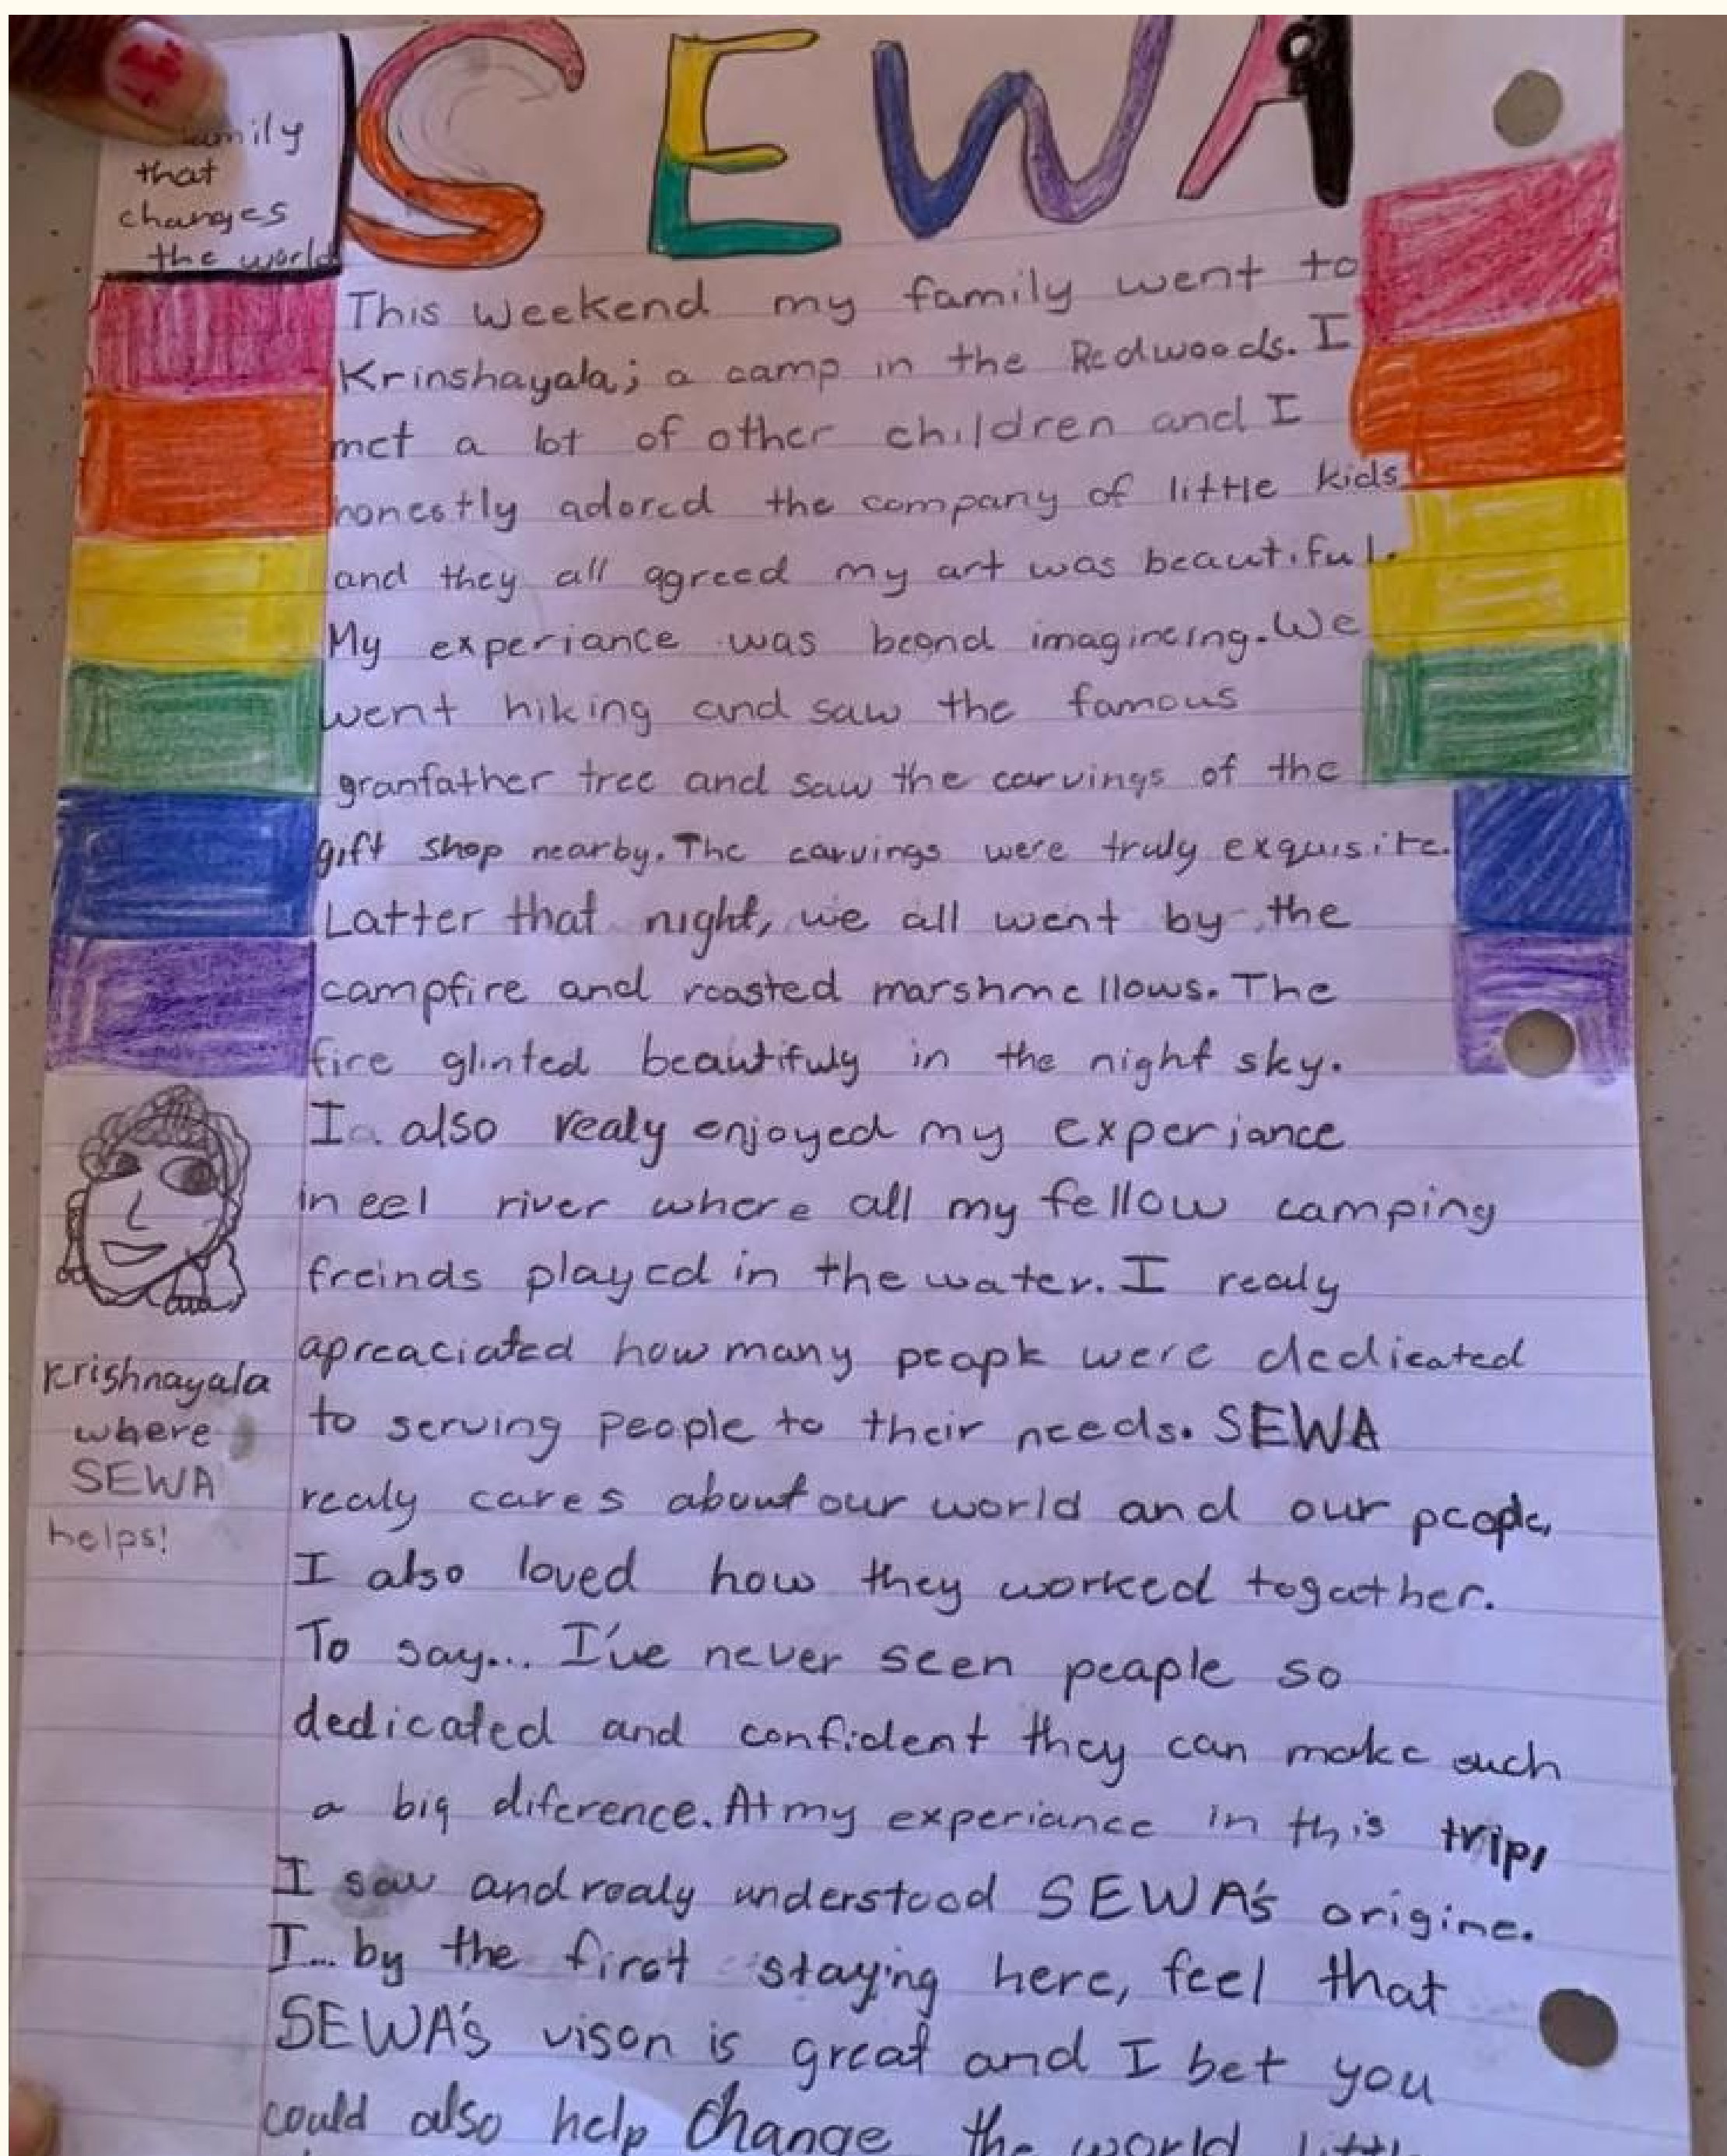 SEWA
family
that
changes
the world
This weekend my family went to
Krinshayala; a camp in the Redwoods. I
met a lot of other children and I
honestly adored the company of little kids
and they all agreed my art was beautiful.
My experiance was beond imagineing. We
went hiking and saw the famous
granfather tree and saw the carvings of the
gift shop nearby. The carvings were truly exquisite.
Latter that night, we all went by the
campfire and roasted marshmellows. The
fire glinted beautifuly in the night sky.
I also realy enjoyed my experiance
in eel river where all my fellow camping
freinds played in the water. I realy
apreaciated how many peaple were dedicated
to serving people to their needs. SEWA
realy cares about our world and our people,
I also loved how they worked togeather.
To say... I've never seen peaple so
dedicated and confident they can make such
a big diference. At my experiance in this trip,
I saw and realy understood SEWA's origine.
I... by the first staying here, feel that
SEWA's vison is great and I bet you
could also help change the world
Krishnayala
where
SEWA
helps!